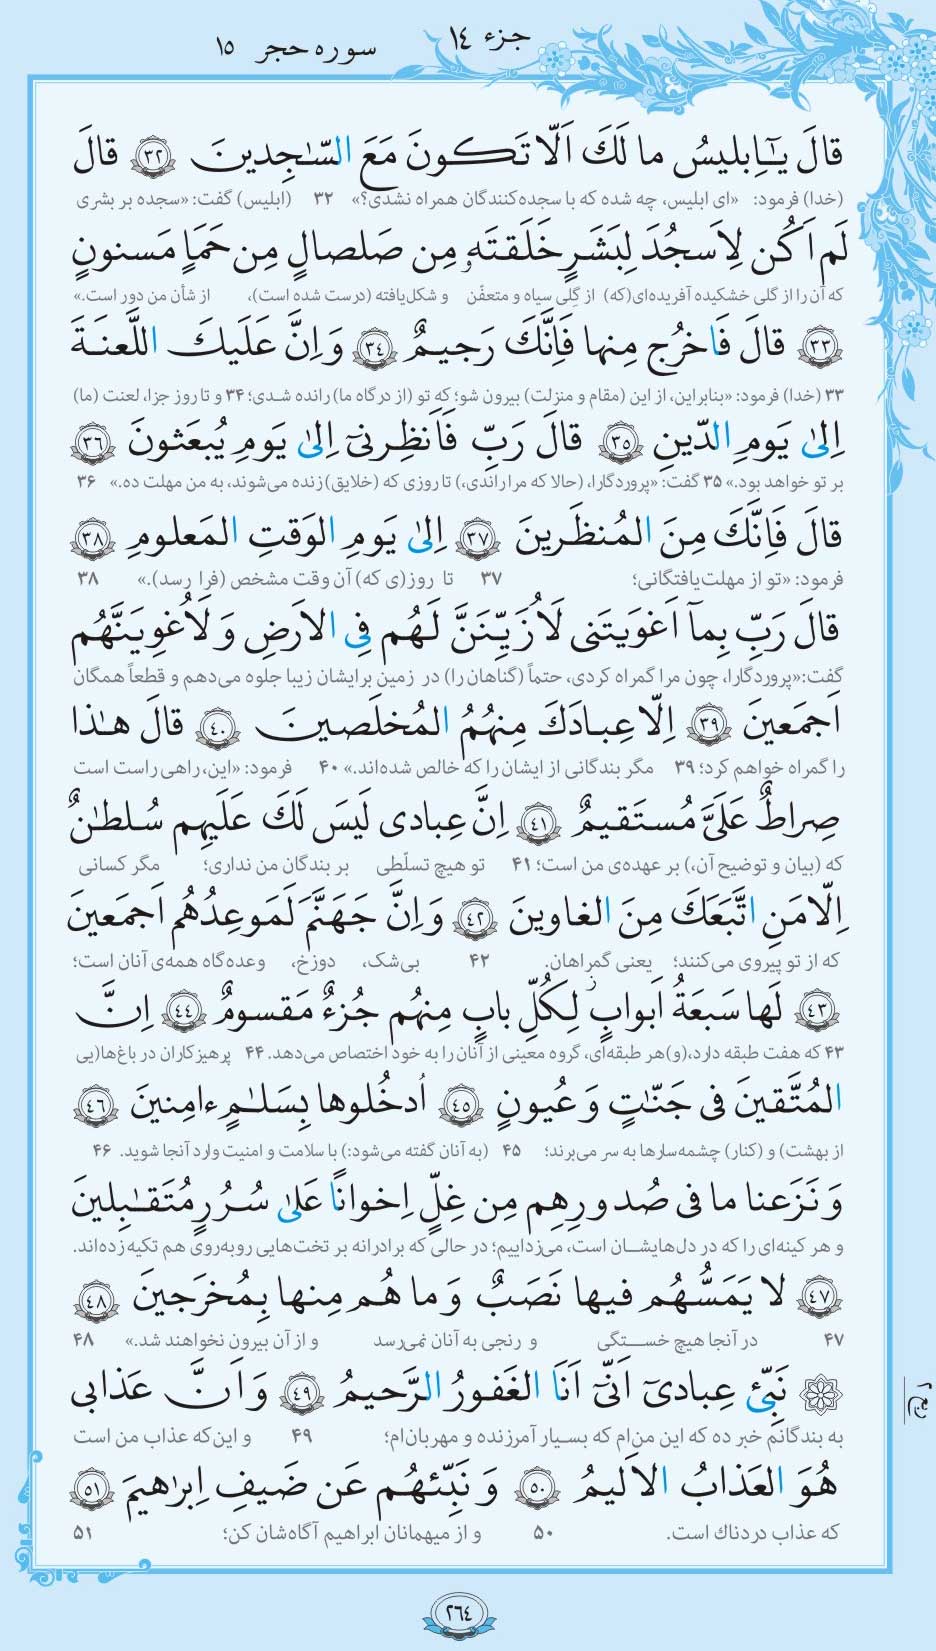 جزء ١٤
سوره حجر ١٥
قالَ يٰٓـاِبليسُ ما لَكَ اَلّا تَكونَ مَعَ السّٰجِدينَ ﴿٣٢﴾ قالَ
(خدا) فرمود: «ای ابلیس، چه شده که با سجده‌کنندگان همراه نشدی؟» ۳۲ (ابلیس) گفت: «سجده بر بشری
لَم اَكُن لِاَسجُدَ لِبَشَرٍ خَلَقتَهٗ مِن صَلصالٍ مِن حَمَاٍ مَسنونٍ
که آن را از گلی خشکیده آفریده‌ای(که) از گِلی سیاه و متعفّن و شکل‌یافته (درست شده است)، از شأن من دور است.»
﴿٣٣﴾ قالَ فَاخرُج مِنها فَاِنَّكَ رَجيمٌ ﴿٣٤﴾ وَ اِنَّ عَلَيكَ اللَّعنَةَ
۳۳ (خدا) فرمود: «بنابراین، از این (مقام و منزلت) بیرون شو؛ که تو (از درگاه ما) رانده شدی؛ ۳۴ و تا روز جزا، لعنت (ما)
اِلىٰ يَومِ الدّينِ ﴿٣٥﴾ قالَ رَبِّ فَاَنظِرنىٓ اِلىٰ يَومِ يُبعَثونَ ﴿٣٦﴾
بر تو خواهد بود.» ۳۵ گفت: «پروردگارا، (حالا که مرا راندی،) تا روزی که (خلایق) زنده می‌شوند، به من مهلت ده.» ۳۶
قالَ فَاِنَّكَ مِنَ المُنظَرينَ ﴿٣٧﴾ اِلىٰ يَومِ الوَقتِ المَعلومِ ﴿٣٨﴾
فرمود: «تو از مهلت‌یافتگانی؛ ۳۷ تا روز(ی که) آن وقت مشخص (فرا رسد).» ۳۸
قالَ رَبِّ بِمآ اَغوَيتَنى لَاُزَيِّنَنَّ لَهُم فِى الاَرضِ وَ لَاُغوِيَنَّهُم
گفت:«پروردگارا، چون مرا گمراه کردی، حتماً (گناهان را) در زمین برایشان زیبا جلوه می‌دهم و قطعاً همگان
اَجمَعينَ ﴿٣٩﴾ اِلّا عِبادَكَ مِنهُمُ المُخلَصينَ ﴿٤٠﴾ قالَ هٰذا
را گمراه خواهم کرد؛ ۳۹ مگر بندگانی از ایشان را که خالص شده‌اند.» ۴۰ فرمود: «این، راهی راست است
صِراطٌ عَلَىَّ مُستَقيمٌ ﴿٤١﴾ اِنَّ عِبادى لَيسَ لَكَ عَلَيهِم سُلطٰنٌ
که (بیان و توضیح آن،) بر عهده‌ی من است؛ ۴۱ تو هیچ تسلّطی بر بندگان من نداری؛ مگر کسانی
اِلّا مَنِ اتَّبَعَكَ مِنَ الغاوينَ ﴿٤٢﴾ وَ اِنَّ جَهَنَّمَ لَمَوعِدُهُم اَجمَعينَ
که از تو پیروی می‌کنند؛ یعنی گمراهان. ۴۲ بی‌شک، دوزخ، وعده‌گاه همه‌ی آنان است؛
﴿٤٣﴾ لَها سَبعَةُ اَبوابٍ لِكُلِّ بابٍ مِنهُم جُزءٌ مَقسومٌ ﴿٤٤﴾ اِنَّ
۴۳ که هفت طبقه دارد،(و)هر طبقه‌ای، گروه معینی از آنان را به خود اختصاص می‌دهد. ۴۴ پرهیزکاران در باغ‌ها(یی
المُتَّقينَ فى جَنّٰتٍ وَ عُيونٍ ﴿٤٥﴾ اُدخُلوها بِسَلٰمٍ ءامِنينَ ﴿٤٦﴾
از بهشت) و (کنار) چشمه‌سارها به سر می‌برند؛ ۴۵ (به آنان گفته می‌شود:) با سلامت و امنیت وارد آنجا شوید. ۴۶
وَ نَزَعنا ما فى صُدورِهِم مِن غِلٍّ اِخوانًا عَلىٰ سُرُرٍ مُتَقٰبِلينَ
و هر کینه‌ای را که در دل‌هایشان است، می‌زداییم؛ در حالی که برادرانه بر تخت‌هایی روبه‌روی هم تکیه زده‌اند.
﴿٤٧﴾ لا يَمَسُّهُم فيها نَصَبٌ وَ ما هُم مِنها بِمُخرَجينَ ﴿٤٨﴾
۴۷ در آنجا هیچ خستگی و رنجی به آنان نمی‌رسد و از آن بیرون نخواهند شد.» ۴۸
۞ نَبِّئ عِبادىٓ اَنّىٓ اَنَا الغَفورُ الرَّحيمُ ﴿٤٩﴾ وَ اَنَّ عَذابى
به بندگانم خبر ده که این من‌ام که بسیار آمرزنده و مهربان‌ام؛ ۴۹ و این‌که عذاب من است
هُوَ العَذابُ الاَليمُ ﴿٥٠﴾ وَ نَبِّئهُم عَن ضَيفِ اِبرٰهيمَ ﴿٥١﴾
که عذاب دردناك است. ۵۰ و از میهمانان ابراهیم آگاه‌شان کن؛ ۵۱
٢٦٤